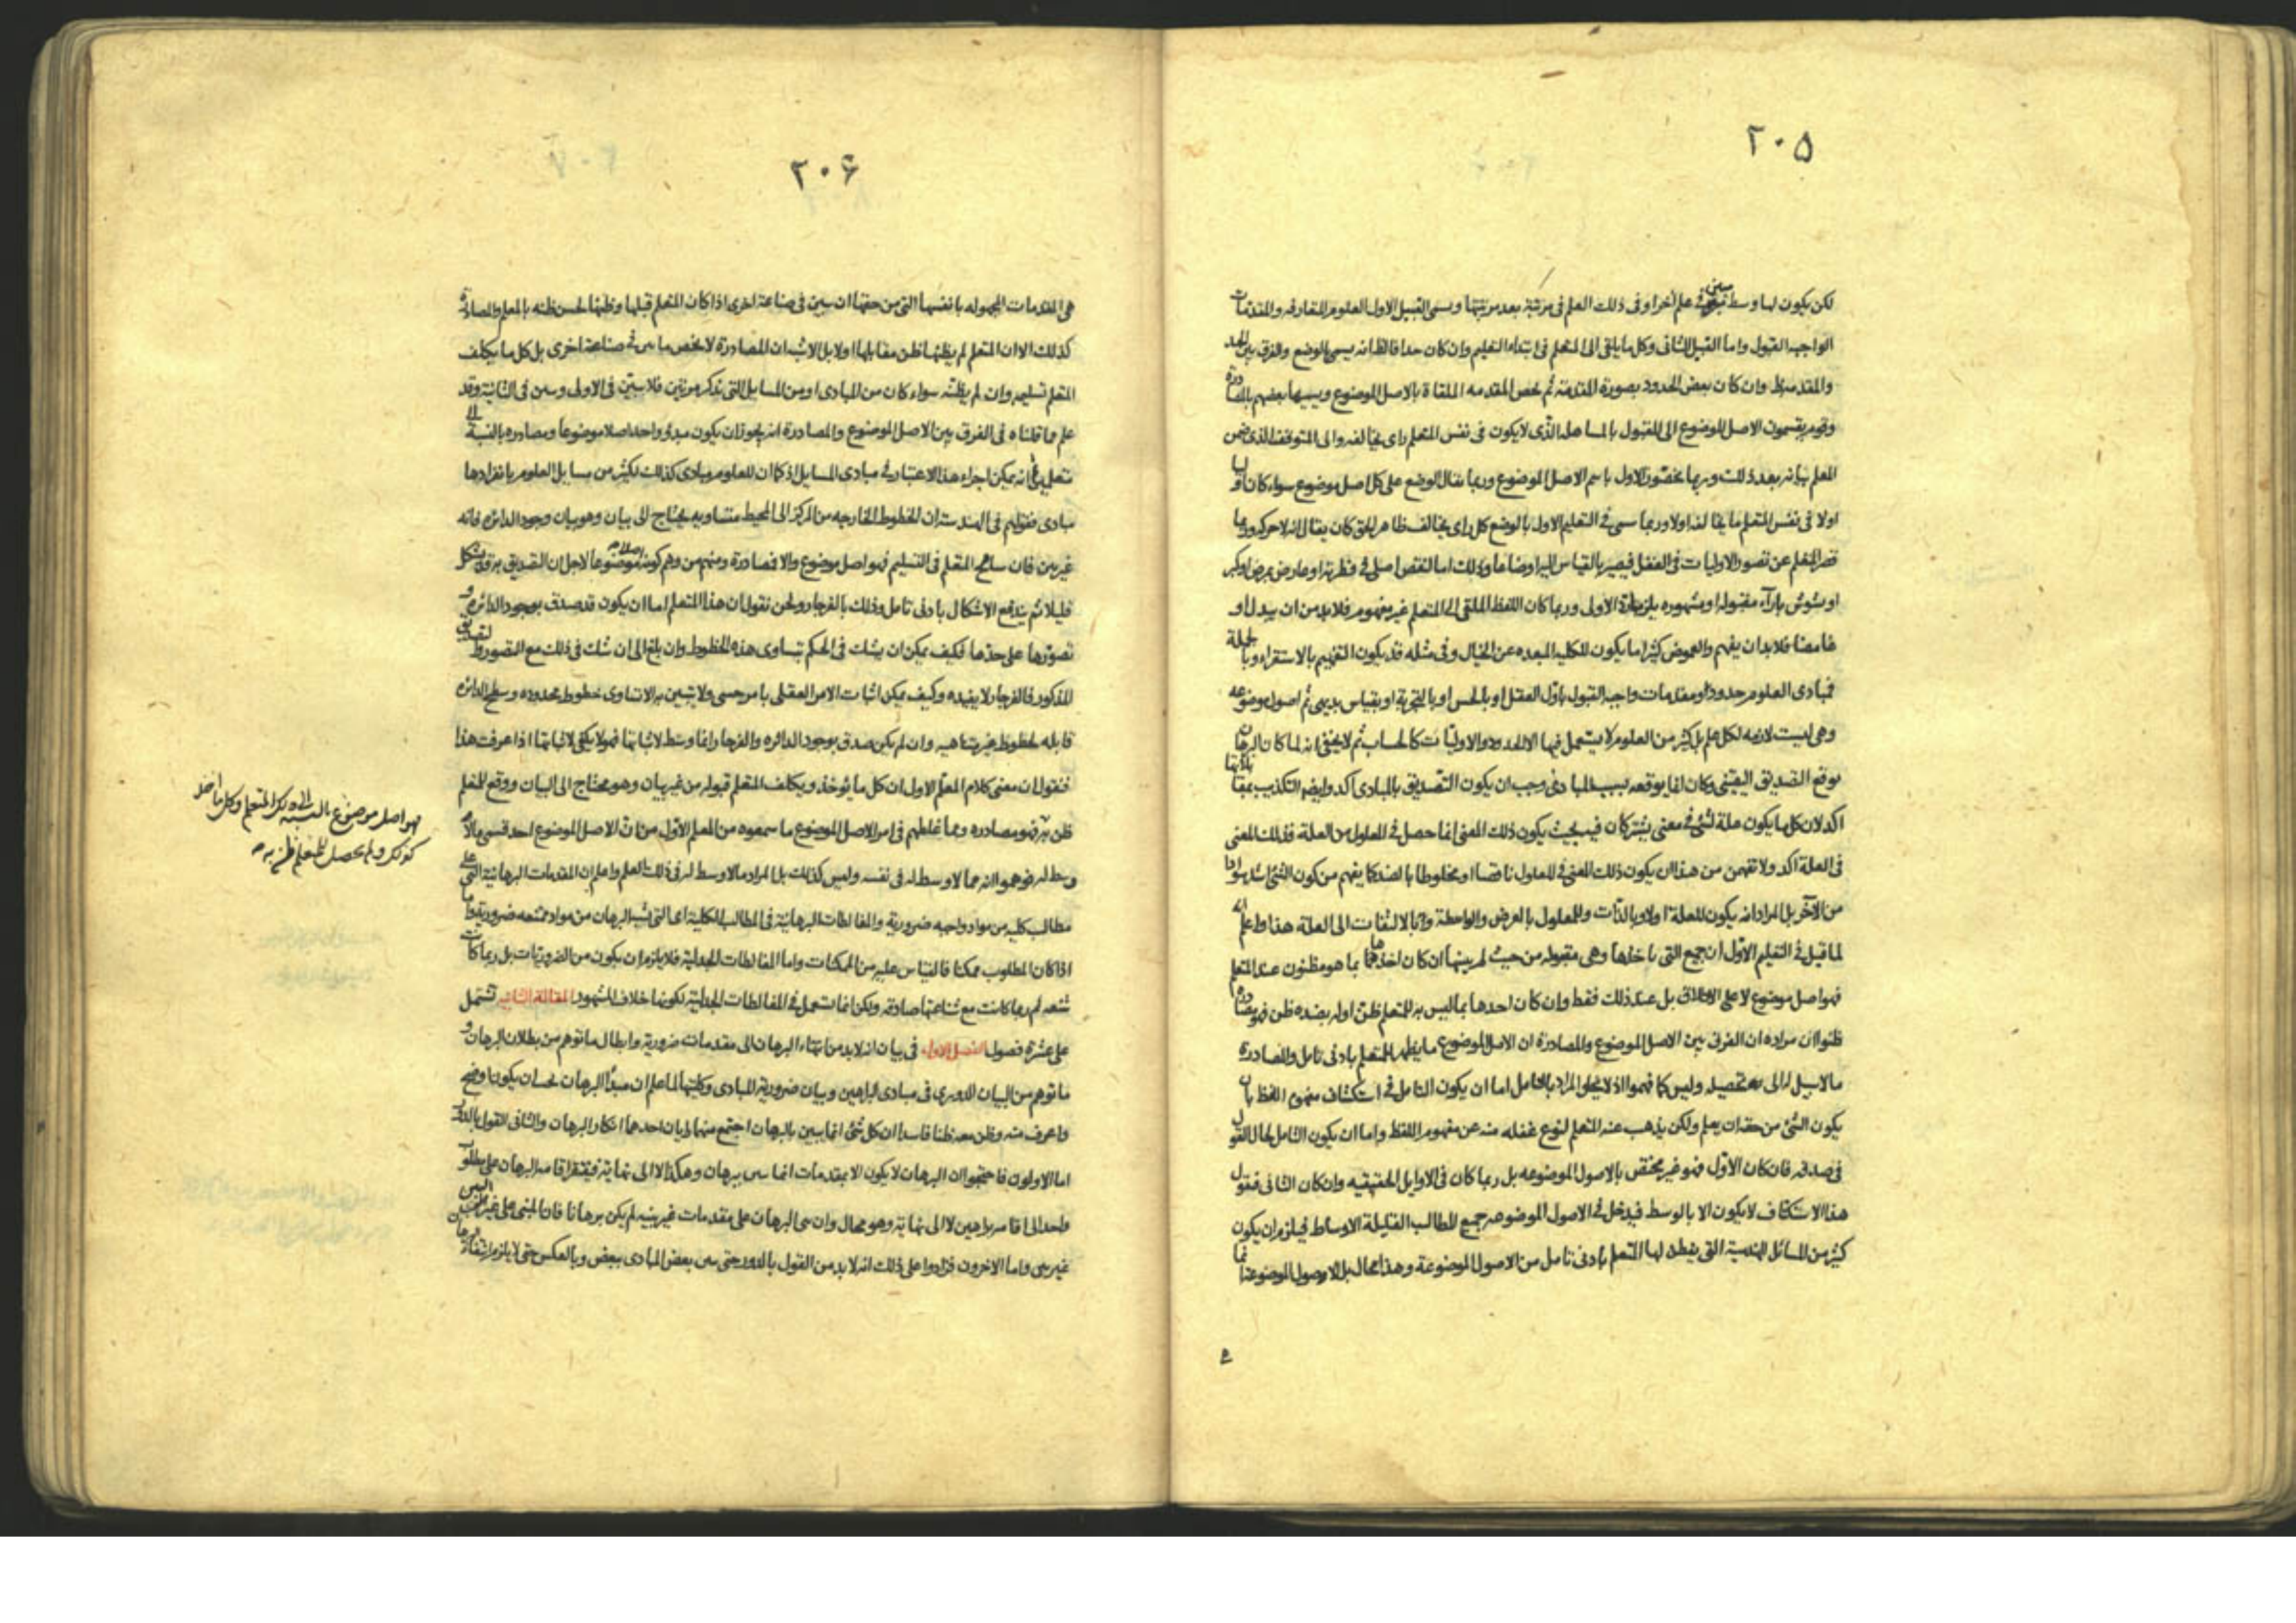 ٢٠۵
لكن يكون لها وسط مبين فى علم آخر او فى ذلك العلم فى مرتبة بعد مرتبتها ويسمى القبيل الاول العلوم المتعارفه والمقدمات
الواجبه القبول واما القبيل الثانى وكل ما يلقى الى المتعلم فى ابتداء التعليم وان كان حدا فالظ انه يسمى بالوضع والفرق بين الحد
والمقدمه ظ وان كان بعض الحدود بصورة المقدمة ثم يخص المقدمه الملقاة بالاصل الموضوع ويسميها بعضهم بالمصادرة
وقوم يقسمون الاصل الموضوع الى المقبول بالمساهله الذى لا يكون فى نفس المتعلم راى يخالفه والى المتوقف الذى ضمن
المعلم بيانه بعد ذلك وربما يخصون الاول باسم الاصل الموضوع وربما يقال الوضع على كل اصل موضوع سواء كان
اولا فى نفس المتعلم ما يخالفه اولا وربما سمى فى التعليم الاول بالوضع كل راى يخالف ظاهر الحق كان يقال انه لا حركه وربما
قصر المتعلم عن تصور الاوليات فى العقل فيصير بالقياس اليه اوضاعا وذلك اما لنقص اصلى فى فطرته او عارض بمرض او كبر
او تشوش بآراء مقبوله او مشهوره يلزمها الاولى وربما كان اللفظ الملقى الى المتعلم غير مفهوم فلا بد من ان يبدل او
غامضا فلا بد ان يفهم والغموض كثيرا ما يكون للكليه المبعده عن الخيال وفى مثله قد يكون التفهيم بالاستقراء وبالجملة
فمبادى العلوم حدود او مقدمات واجبه القبول باول العقل او بالحس او بالتجربة او بقياس بديهى ثم اصول موضوعه
وهى ليست لازمه لكل علم بل كثير من العلوم لا يستعمل فيها الا الحدود والاوليات كالحساب ثم لا يخفى انه لما كان البرهان
يوقع التصديق اليقينى وكان انما يوقعه بسبب المبادى وجب ان يكون التصديق بالمبادى آكد وايضا التكذيب بمقابلاتها
آكد لان كل ما يكون علة لشئ فى معنى يشتركان فيه بحيث يكون ذلك المعنى انما حصل فى المعلول من العلة فذلك المعنى
فى العلة اكد ولا تفهمن من هذا ان يكون ذلك المعنى فى المعلول ناقصا او مخلوطا بالضد كما يفهم من كون الشئ اشد سوادا
من الآخر بل المراد انه يكون للعلة اولا وبالذات وللمعلول بالعرض والواسطة وبالالتفات الى العلة هذا واعلم انه
لما قيل فى التعليم الاول ان جميع التى ناخذها وهى مقبوله من حيث لم يبينها ان كان اخذها بما هو مظنون عند المتعلم
فهو اصل موضوع لا على الاطلاق بل عند ذلك فقط وان كان احدها بما ليس به للمتعلم ظن اوله بضده ظن فهو مصادره
ظنوا ان مراده ان الفرق بين الاصل الموضوع والمصادرة ان الاصل الموضوع ما يظهر للمتعلم بادنى تامل والمصادره
ما لا سبيل له الى تحصيله وليس كما فهموا اذ لا يخلو المراد بالتامل اما ان يكون التامل فى استكشاف مفهوم اللفظ بان
يكون الشئ من حقه ان يعلم ولكن يذهب عنه المتعلم لنوع غفله منه عن مفهوم اللفظ واما ان يكون التامل لحال القول
فى صدقه فان كان الاول فهو غير مختص بالاصول الموضوعه بل ربما كان فى الاوايل الحقيقيه وان كان الثانى فنقول
هذا الاستكشاف لا يكون الا بالوسط فيدخل فى الاصول الموضوعه جميع المطالب القليلة الاوساط فيلزم ان يكون
كثير من المسائل الهندسية التى يفطن لها المتعلم بادنى تامل من الاصول الموضوعة وهذا محال بل الاصول الموضوعة انما
٢٠۶
هى المقدمات المجهوله بانفسها التى من حقها ان تبين فى صناعة اخرى اذا كان المتعلم قبلها وظنها لحسن ظنه بالمعلم والمصادرة
كذلك الا ان المتعلم لم يظنها ظن مقابلها اولا بل الاشبه ان المصادرة لا يخص ما تبين فى صناعة اخرى بل كل ما يكلف
المتعلم تسليمه وان لم يظنه سواء كان من المبادى او من المسايل التى تذكر مرتين فلا تبين فى الاولى وتبين فى الثانية وقد
علم مما قلناه فى الفرق بين الاصل الموضوع والمصادرة انه يجوز ان يكون مبدؤ واحد اصلا موضوعا ومصادره بالنسبة الى
متعلمين ثم انه يمكن اجراء هذا الاعتبار فى مبادى المسايل اذ كما ان للعلوم مبادى كذلك لكثير من مسايل العلوم بانفرادها
مبادى فقولهم فى الهندسة ان الخطوط الخارجه من المركز الى المحيط متساويه يحتاج الى بيان وهو بيان وجود الدائره فانه
غير بين فان سامح المتعلم فى التسليم فهو اصل موضوع والا فمصادرة ومنهم من وهم كونه اصلا موضوعا لاجل ان التصديق به قد يشكل
قليلا ثم يندفع الاشكال بادنى تامل وذلك بالفرجار ونحن نقول ان هذا المتعلم اما ان يكون قد صدق بوجود الدائره و
تصورها على حدها فكيف يمكن ان يشك فى الحكم بتساوى هذه الخطوط وان بلغ الى ان شك فى ذلك مع التصور والتصديق
المذكور فالفرجار لا يفيده وكيف يمكن اثبات الامر العقلى بامر حسى ولا يتبين به الا تساوى خطوط محدوده وسطح الدائره
قابله لخطوط غير متناهيه وان لم يكن صدق بوجود الدائره والفرجار انما وسط لاثباتها فهو لا يكفى لاثباتها اذا عرفت هذا
فنقول ان معنى كلام المعلم الاول ان كل ما يؤخذ ويكلف المتعلم قبوله من غير بيان وهو محتاج الى البيان ووقع للمتعلم
ظن به فهو مصادره ومما غلطهم فى امر الاصل الموضوع ما سمعوه من المعلم الاول من ان الاصل الموضوع احد قسمى ما لا
وسط له فتوهموا انه مما لا وسط له فى نفسه وليس كذلك بل المراد ما لا وسط له فى ذلك العلم واعلم ان المقدمات البرهانية التى على
مطالب كليه من مواد واجبه ضرورية والمغالطات البرهانية فى المطالب الكلية اى التى تشبه البرهان من مواد ممتنعه ضرورية واما
اذا كان المطلوب ممكنا فالقياس عليه من الممكنات واما المغالطات الجدلية فلا يلزم ان يكون من الضروريات بل ربما كانت
شنعه ثم ربما كانت مع شناعتها صادقه ولكن انما تستعمل فى المغالطات الجدلية لكونها خلاف المشهود المقالة الثانيه تشتمل
على عشرة فصول الفصل الاول فى بيان انه لا بد من انتهاء البرهان الى مقدمات ضرورية وابطال ما توهم من بطلان البرهان و
ما توهم من البيان الدورى فى مبادى البراهين وبيان ضرورية المبادى وكليتها لما علم ان مبدأ البرهان يجب ان يكون اوضح
واعرف منه وظن معه ظنا فاسدا ان كل شئ انما يبين بالبرهان اجتمع منهما رايان احدهما انكار البرهان والثانى القول بالدور
اما الاولون فاحتجوا ان البرهان لا يكون الا بمقدمات انما تبين ببرهان وهكذا لا الى نهاية فيفتقر اقامه البرهان على مطلوب
واحد الى اقامه براهين لا الى نهاية وهو محال وان بنى البرهان على مقدمات غير بينه لم يكن برهانا فان المبنى على غير البين
غير بين واما الاخرون فزادوا على ذلك انه لا بد من القول بالدور حتى تبين بعض المبادى ببعض وبالعكس حتى لا يلزم انتفاء البرهان
فهو اصل موضوع بالنسبه الى ذلك المتعلم وكل ما اخذ
كذلك ولم يحصل للمتعلم ظن به صح